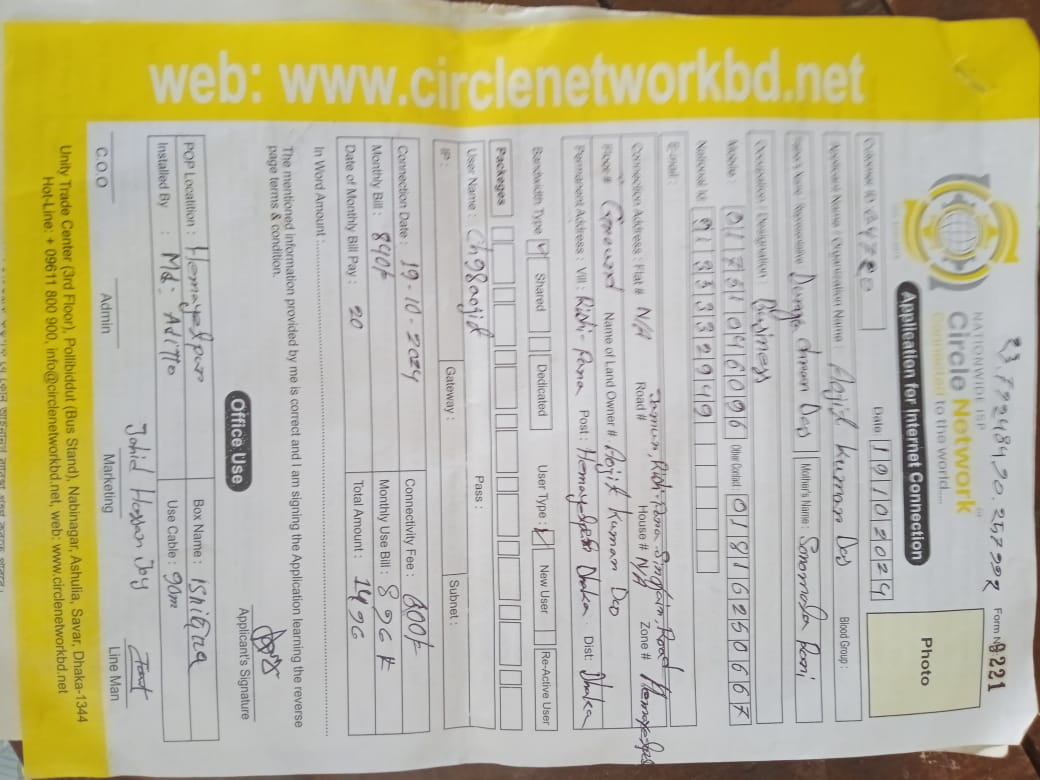 23.7924890.257992
NATIONWIDE ISP
Circle Network
Connected to the world....
Form No 9221
Application for Internet Connection
Photo
Customer ID
Date 19102024
Applicant Name / Organisation Name : Ajit kumar Das
Blood Group :
Mother's Name : Rani
Occupation / Designation : Business
Mobile : 01751046096 Other Contact 01816250667
National Id: 9133332949
E-mail :
Connection Address : Flat # N/A Road # House # N/A Zone #
Floor # Ground Name of Land Owner # Ajit Kumar Das
Permanent Address : Vill : Rishi-Para Post : Hemayetpur Dhaka Dist: Dhaka
Bandwidth Type Shared Dedicated User Type : New User Re-Active User
Packeges
User Name : Pass :
IP : Gateway : Subnet :
Connection Date : 19-10-2024 Connectivity Fee : 600/-
Monthly Bill : 840/- Monthly Use Bill : 896
Date of Monthly Bill Pay : 20 Total Amount : 1496
In Word Amount :
The mentioned information provided by me is correct and I am signing the Application learning the reverse
page terms & condition.
Applicant's Signature
Office Use
POP Locatition : Hemayetpur Box Name :
Installed By : Md: Aditto Use Cable : 90m
C.O.O Admin Marketing Line Man
Unity Trade Center (3rd Floor), Pollibiddut (Bus Stand), Nabinagar, Ashulia, Savar, Dhaka-1344
Hot-Line: + 09611 800 900, info@circlenetworkbd.net, web: www.circlenetworkbd.net
web: www.circlenetworkbd.net